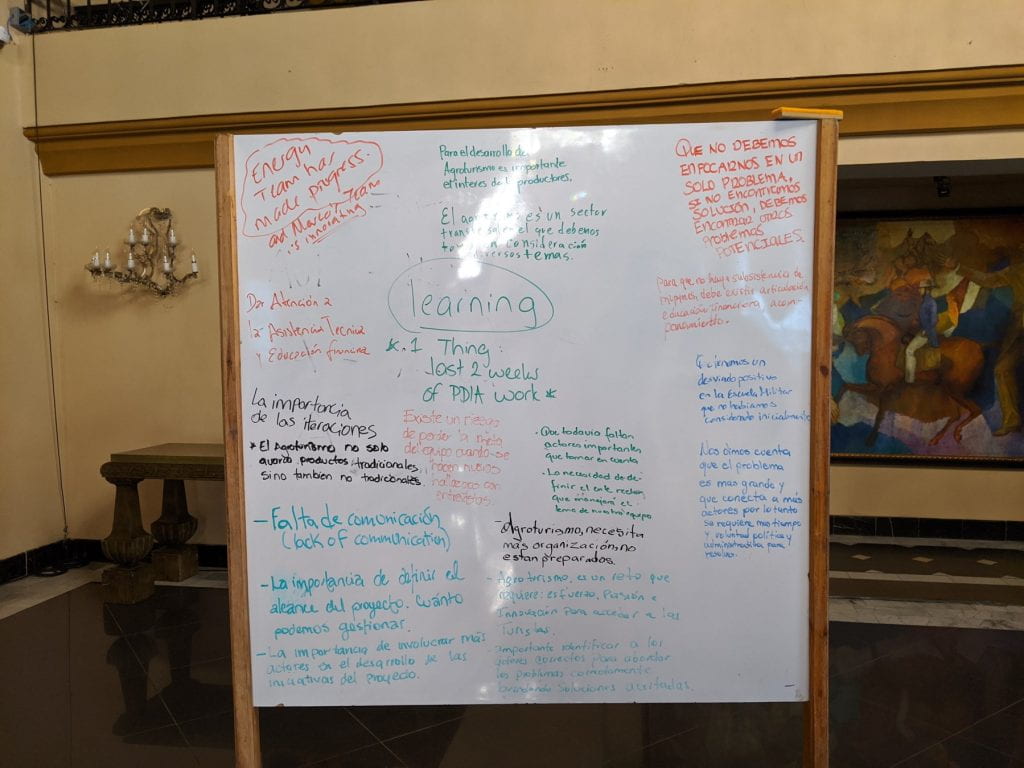 Energy
Team has
made progress.
and Marco's Team
is innovating
Para el desarollo de
Agroturismo es importante
el interes de productores.
El es un sector
el que debemos
en consideración
temas.
QUE NO DEBEMOS
ENFOCARNOS EN UN
SOLO PROBLEMA,
SI NO ENCONTRAMOS
SOLUCIÓN, DEBEMOS
ENCONTRAR OTROS
PROBLEMAS
POTENCIALES.
Para que no haya subsistencia de
mipymes, debe existir articulación
educación financiera, acom-
pañamiento.
learning
*.1 Thing:
last 2 weeks
of PDIA work *
Dar Atención a
la Asistencia Tecnica
y Educación financiera
La importancia
de las iteraciones
* El Agroturismo no solo
productos tradicionales
sino tambien no tradicionales.
Existe un riesgo
de perder la meta
del equipo cuando se
hacen nuevos
hallazgos con
entrevistas.
• Que todavia faltan
actores importantes
que tomar en cuenta
• La necesidad de de-
finir el ente rector
que manejará el
tema de nuestro equipo
Que tenemos un
desvío positivo
en la Escuela Militar
que no habiamos
considerado inicialmente
Nos dimos cuenta
que el problema
es mas grande y
que conecta a más
actores por lo tanto
se requiere mas tiempo
y voluntad politica y
administrativa para
resolver.
- Falta de comunicación
(lack of communication)
- Agroturismo, necesita
más organización, no
estan preparados.
- La importancia de definir el
alcance del proyecto. Cuánto
podemos gestionar.
- La importancia de involucrar más
actores en el desarrollo de las
iniciativas del proyecto.
- Agroturismo, es un reto que
requiere: esfuerzo, Pasión e
Innovación para acceder a los
Turistas.
- Importante identificar a los
actores correctos para abordar
los problemas correctamente
brindando soluciones acertadas.